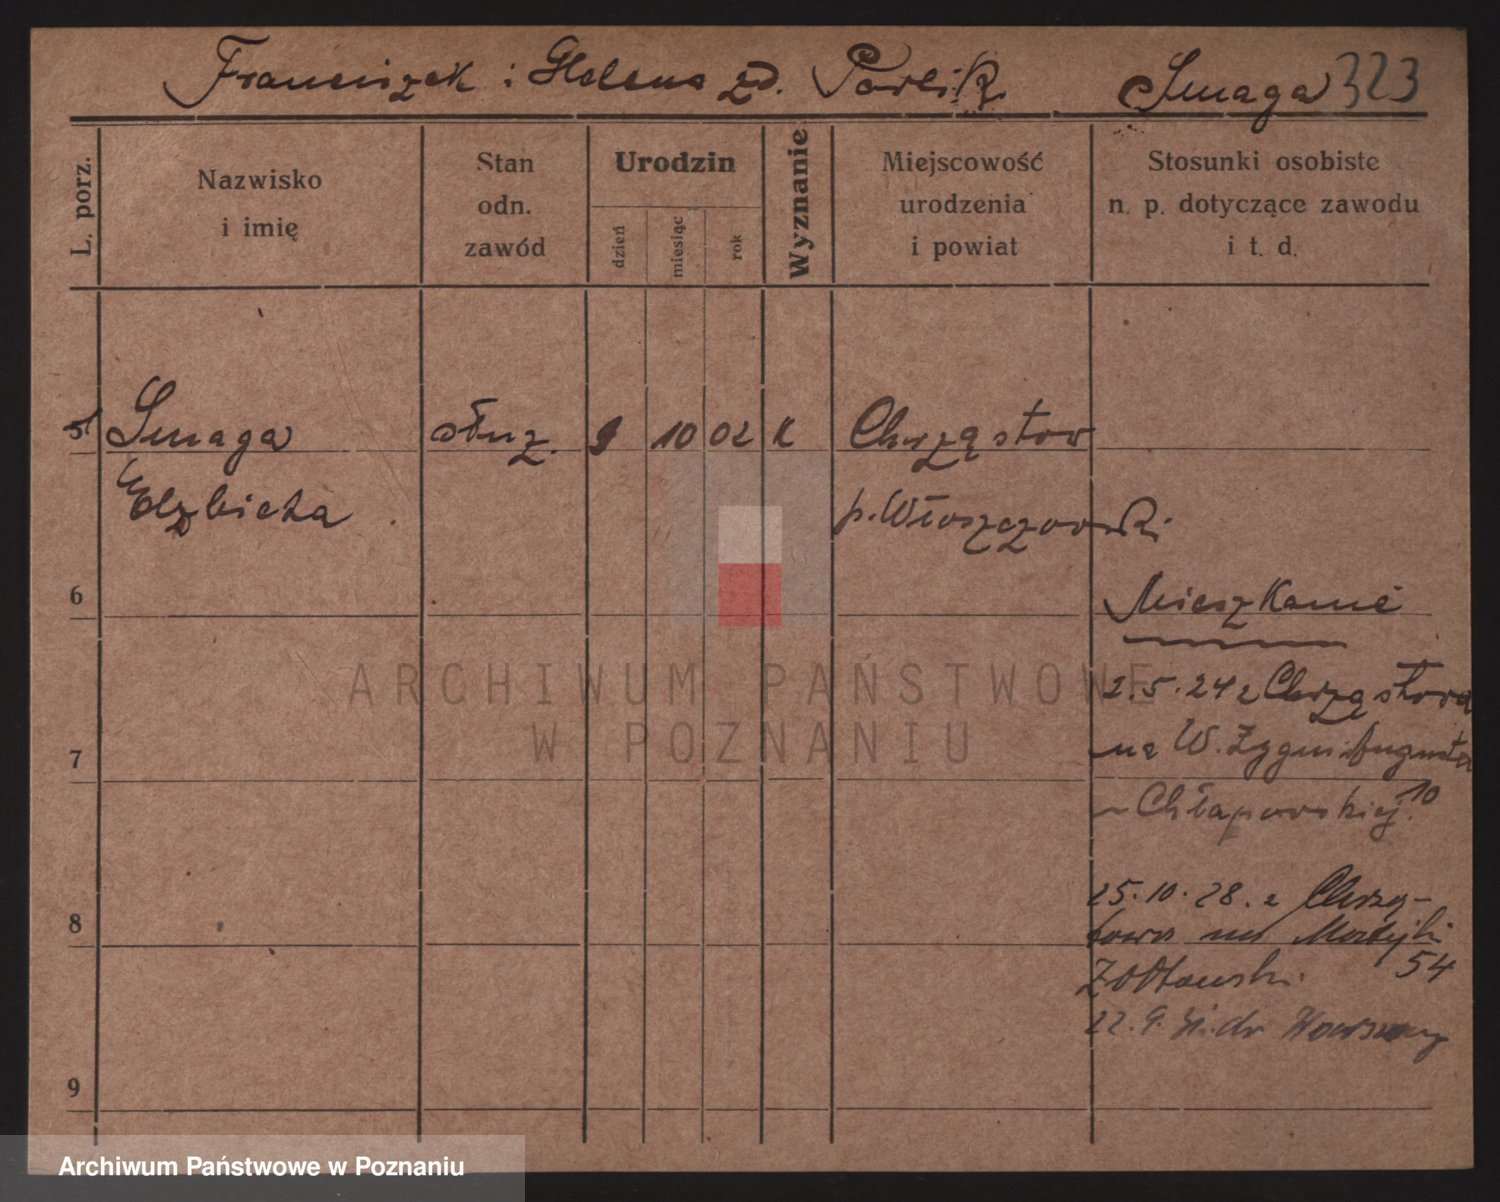 Franciszek i Helena zd. Pawlik Smaga 323
L. porz.
Nazwisko
i imię
Stan
odn.
zawód
Urodzin
dzień
miesiąc
rok
Wyznanie
Miejscowość
urodzenia
i powiat
Stosunki osobiste
n. p. dotyczące zawodu
i t. d.
5 Smaga służ. 9 10 02 K Chrząstow
Elżbieta p. Włoszczowski
6 Mieszkanie
2.5.24 z Chrząstowa
7 na W. Zygm. Augusta
Chłapowskiej 10
25.10.28. z Chrzą-
8 towa na Matejki
54
22.9. do Warszawy
9
ARCHIWUM PAŃSTWOWE
W POZNANIU
Archiwum Państwowe w Poznaniu